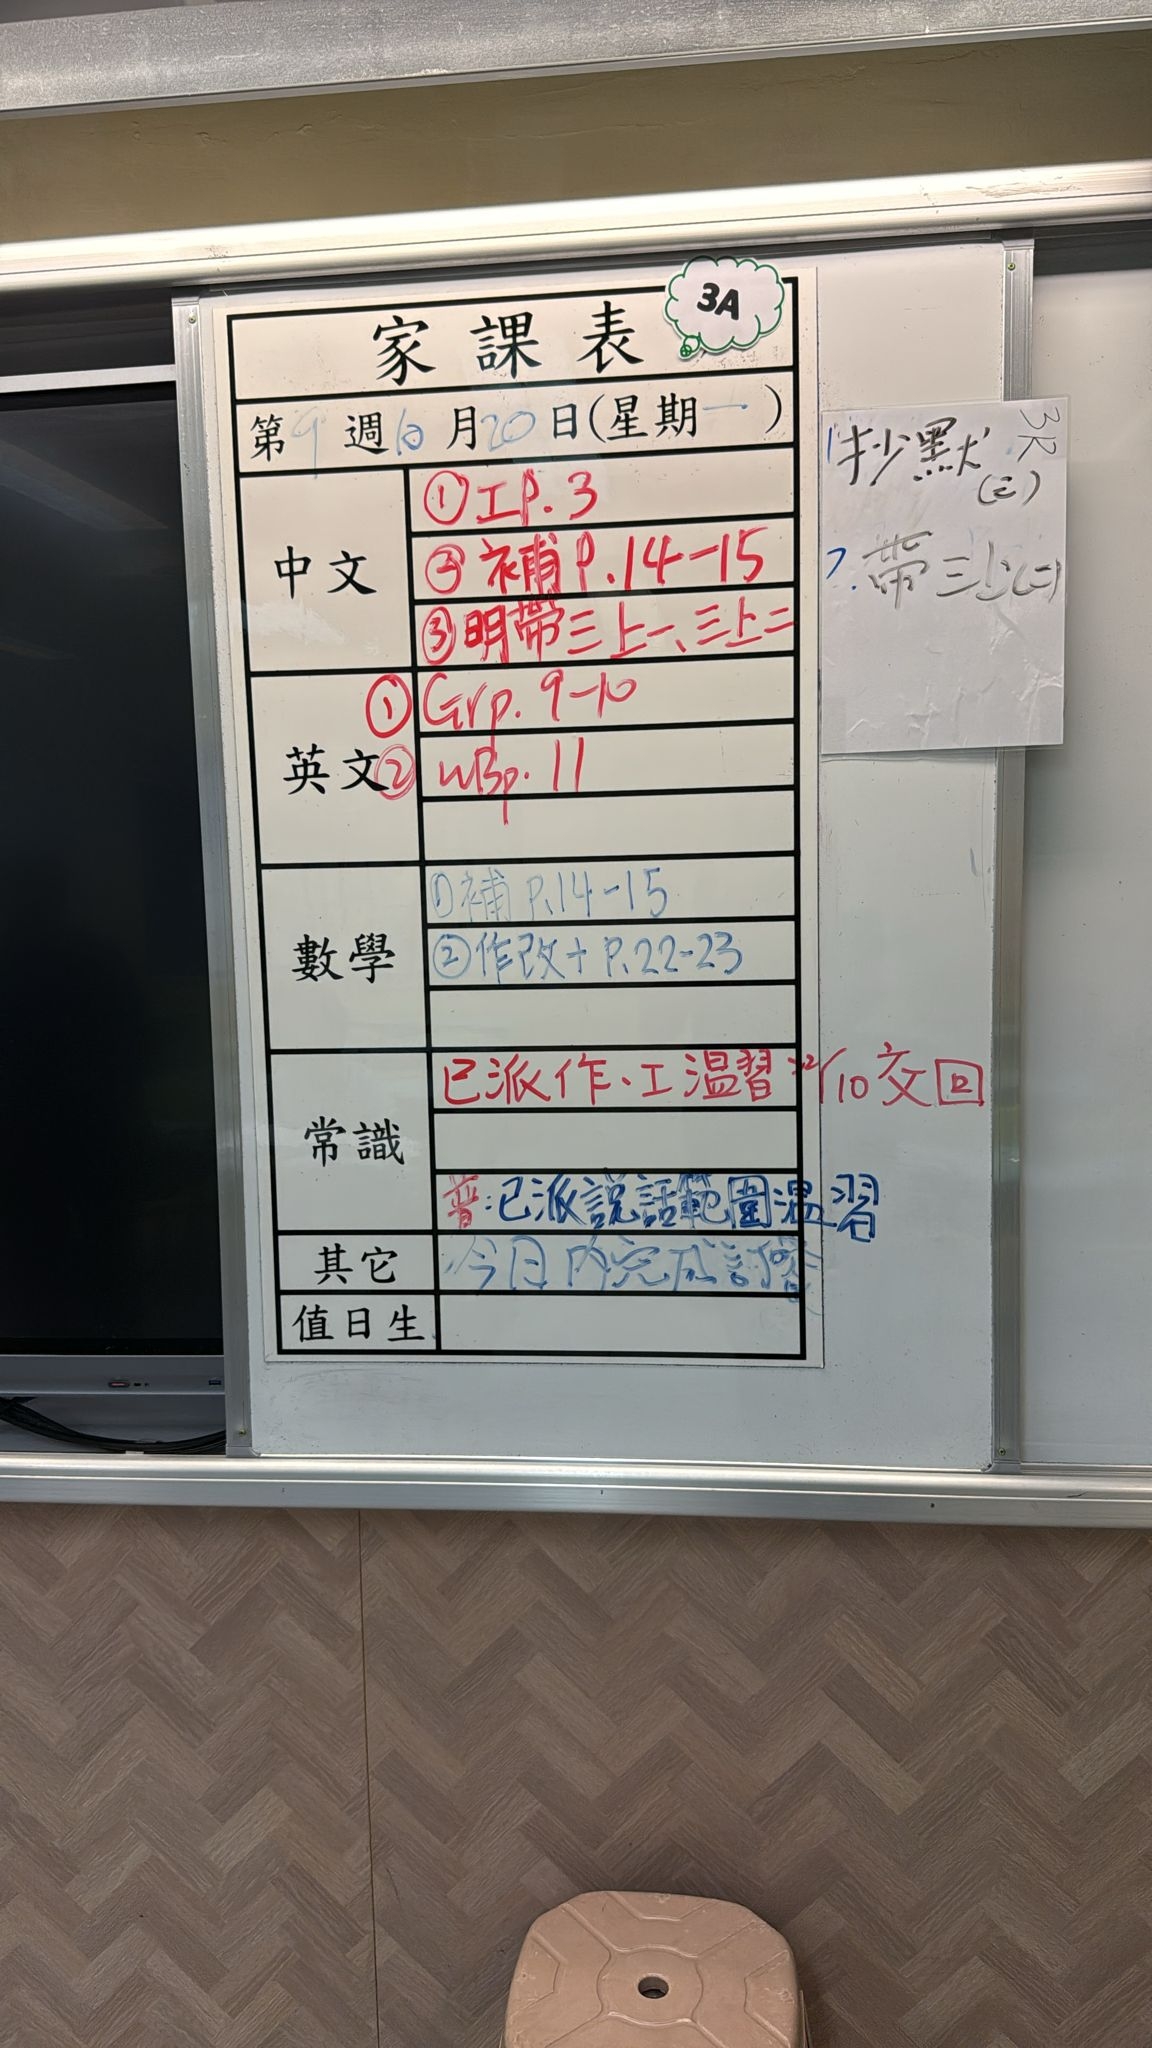 3A
家課表
第9週10月20日(星期一)
中文
①工P.3
②補P.14-15
③明帶三上一、三上二
英文
①Grp.9-10
②WBp.11
數學
①補P.14-15
②作改+P.22-23
常識
已派作、工溫習 22/10交回
普:已派說話範圍溫習
其它
今日內完成訂
值日生
3R
1.抄默
(三)
2.帶三上(二)